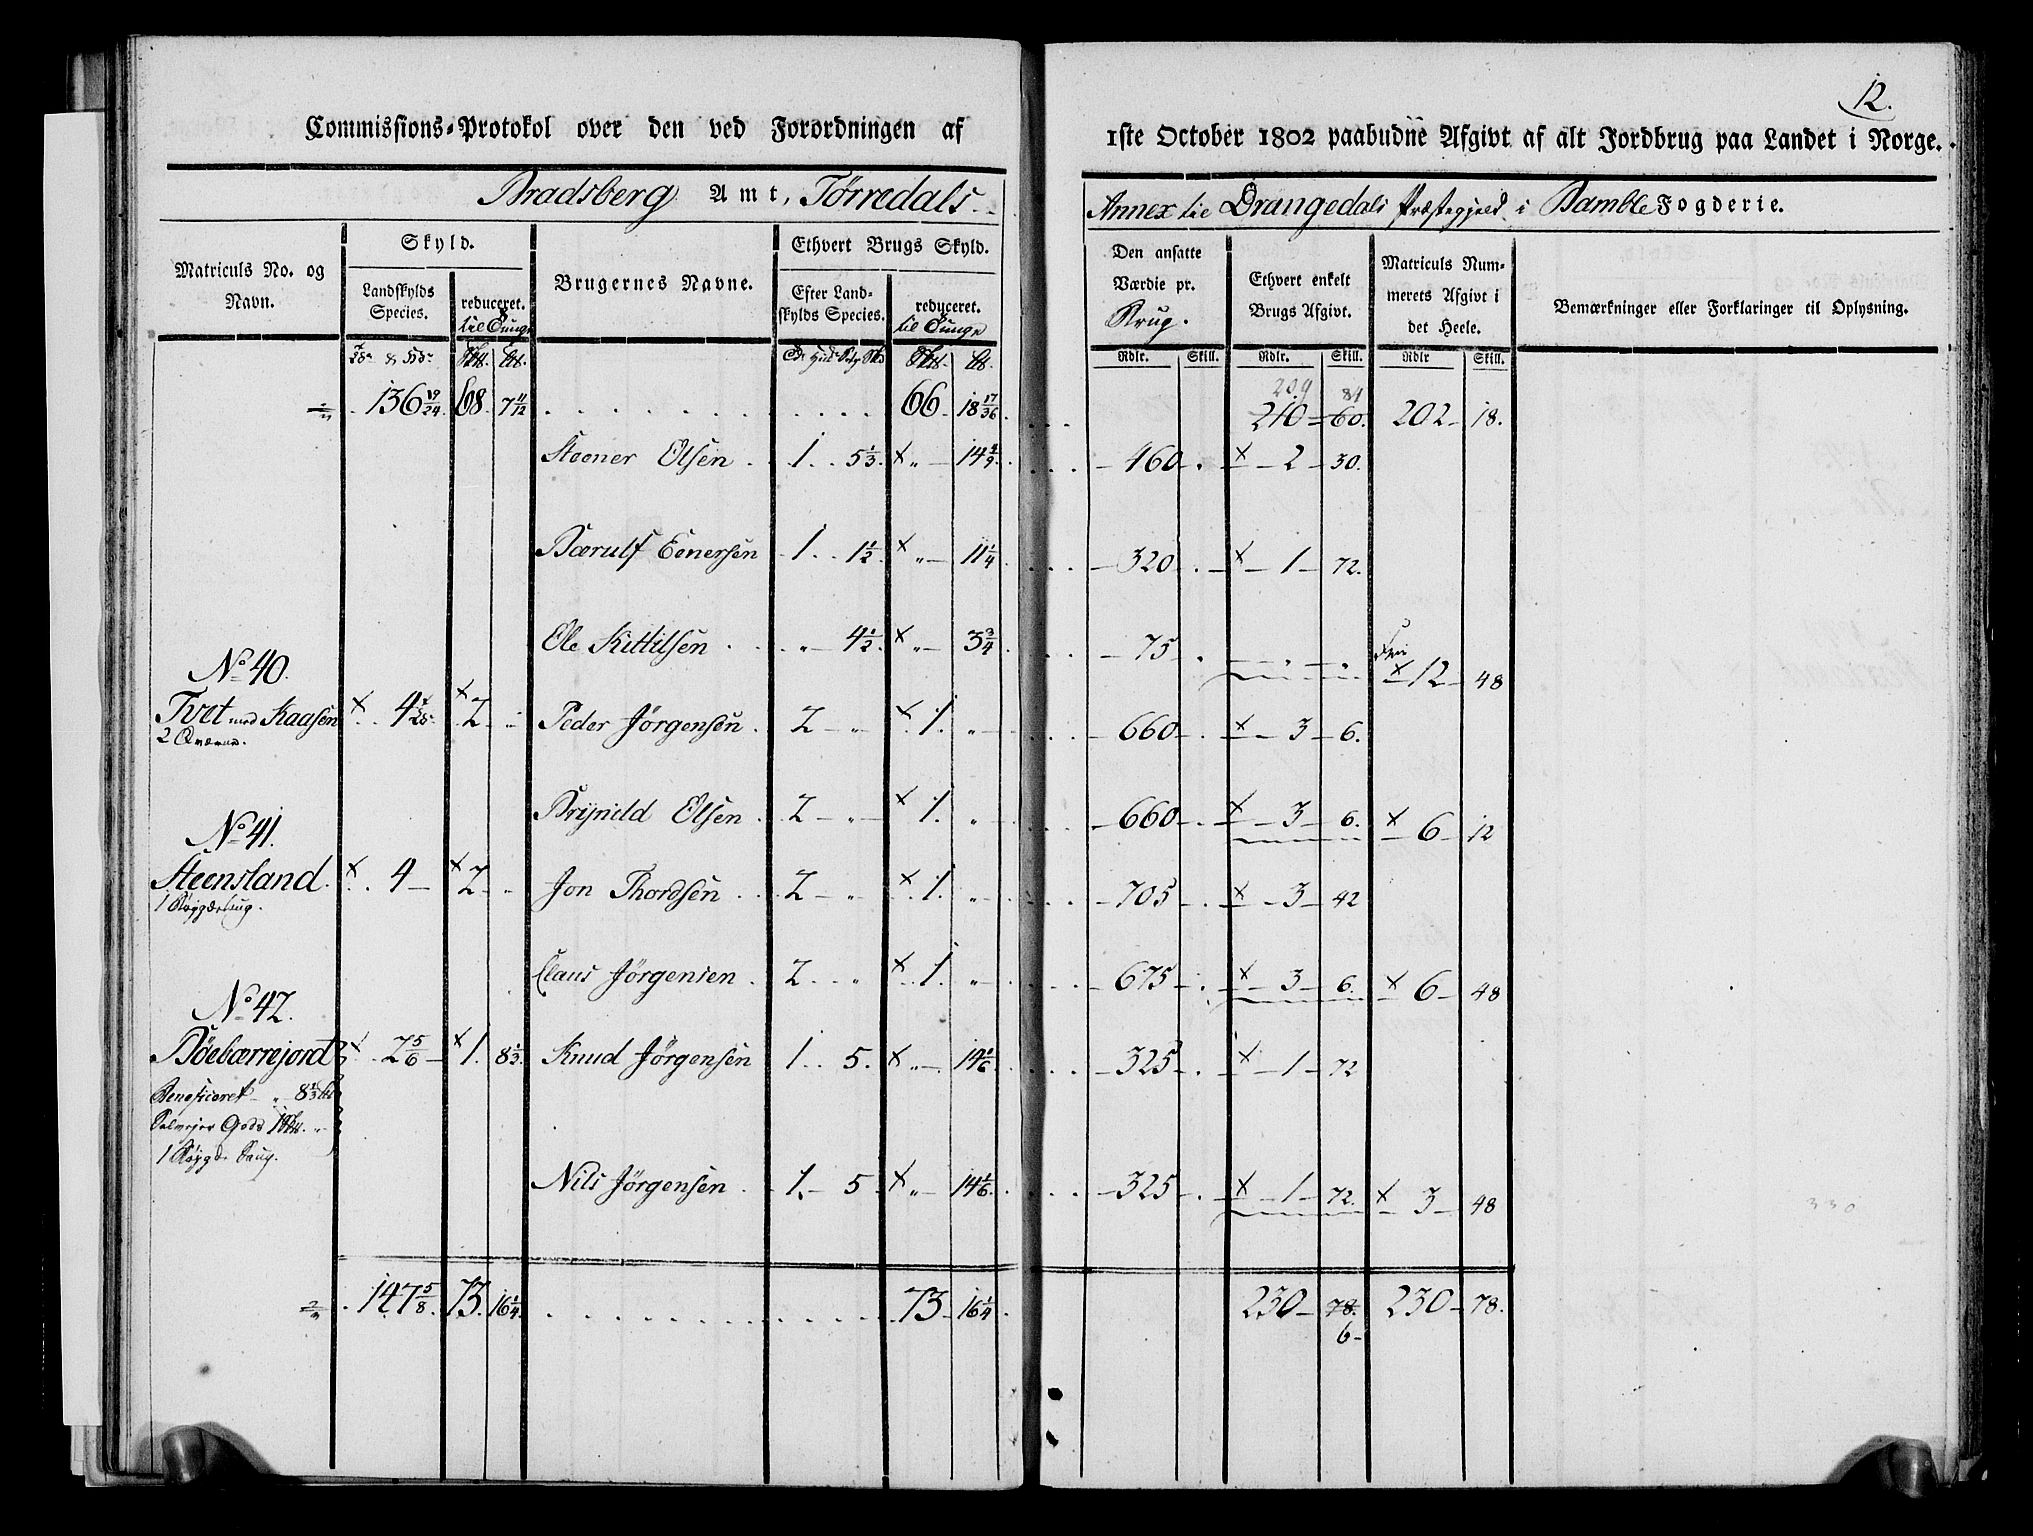 12.
Commissions-Protokol over den ved Forordningen af 1ste October 1802 paabudne Afgivt af alt Jordbrug paa Landet i Norge.
Bradsberg Amt, Tørredals Annex til Drangedals Præstegjeld i Bamble Fogderie.
Matriculs No. og Navn.
Skyld.
Landskylds Species.
reduceret.
til Tunge
Brugernes Navne.
Ethvert Brugs Skyld.
Efter Landskylds Species.
reduceret.
til Tunge
Den ansatte Værdie pr. Brug.
Ethvert enkelt Brugs Afgivt.
Matriculs Nummerets Afgivt i det Heele.
Bemærkninger eller Forklaringer til Oplysning.
Rdlr. Skill. Rdlr. Skill. Rdlr Skill.
209 84
136 19/24 68. 7 11/12 66. 18 17/36 210 60. 202 18.
Steener Olsen 1 5 1/3 " 14 4/9 460 2 30.
Bærulf Eenersen 1 1 1/2 " 11 1/4 320 1 72.
Ole Kittilsen " 4 1/2 " 3 3/4 75 " "
Fri 12 48
No 40.
Tvet med Kaasen 2 Peder Jörgensen 2 " 1. " 660 3 6.
Brynild Olsen 2 " 1. " 660 3 6. 6 12
No 41.
Steensland 4 2 Jon Thordsen 2 " 1. " 705 3 42
1 Bøygdesaug.
Claus Jörgensen 2 " 1. " 675 3 6. 6 48
No 42.
Böebærrejord 2 5/6 1. 8 1/3 Knud Jörgensen 1 5. " 14 1/6 325 1 72
Beneficeret " 8 1/3
Selvejer Gods 1
1 Bøygde Saug.
Nils Jörgensen 1. 5 " 14 1/6 325 1 72. 3 48
330
147 5/8 73. 16 1/4 73 16 1/4 230 78. 230 78.
6